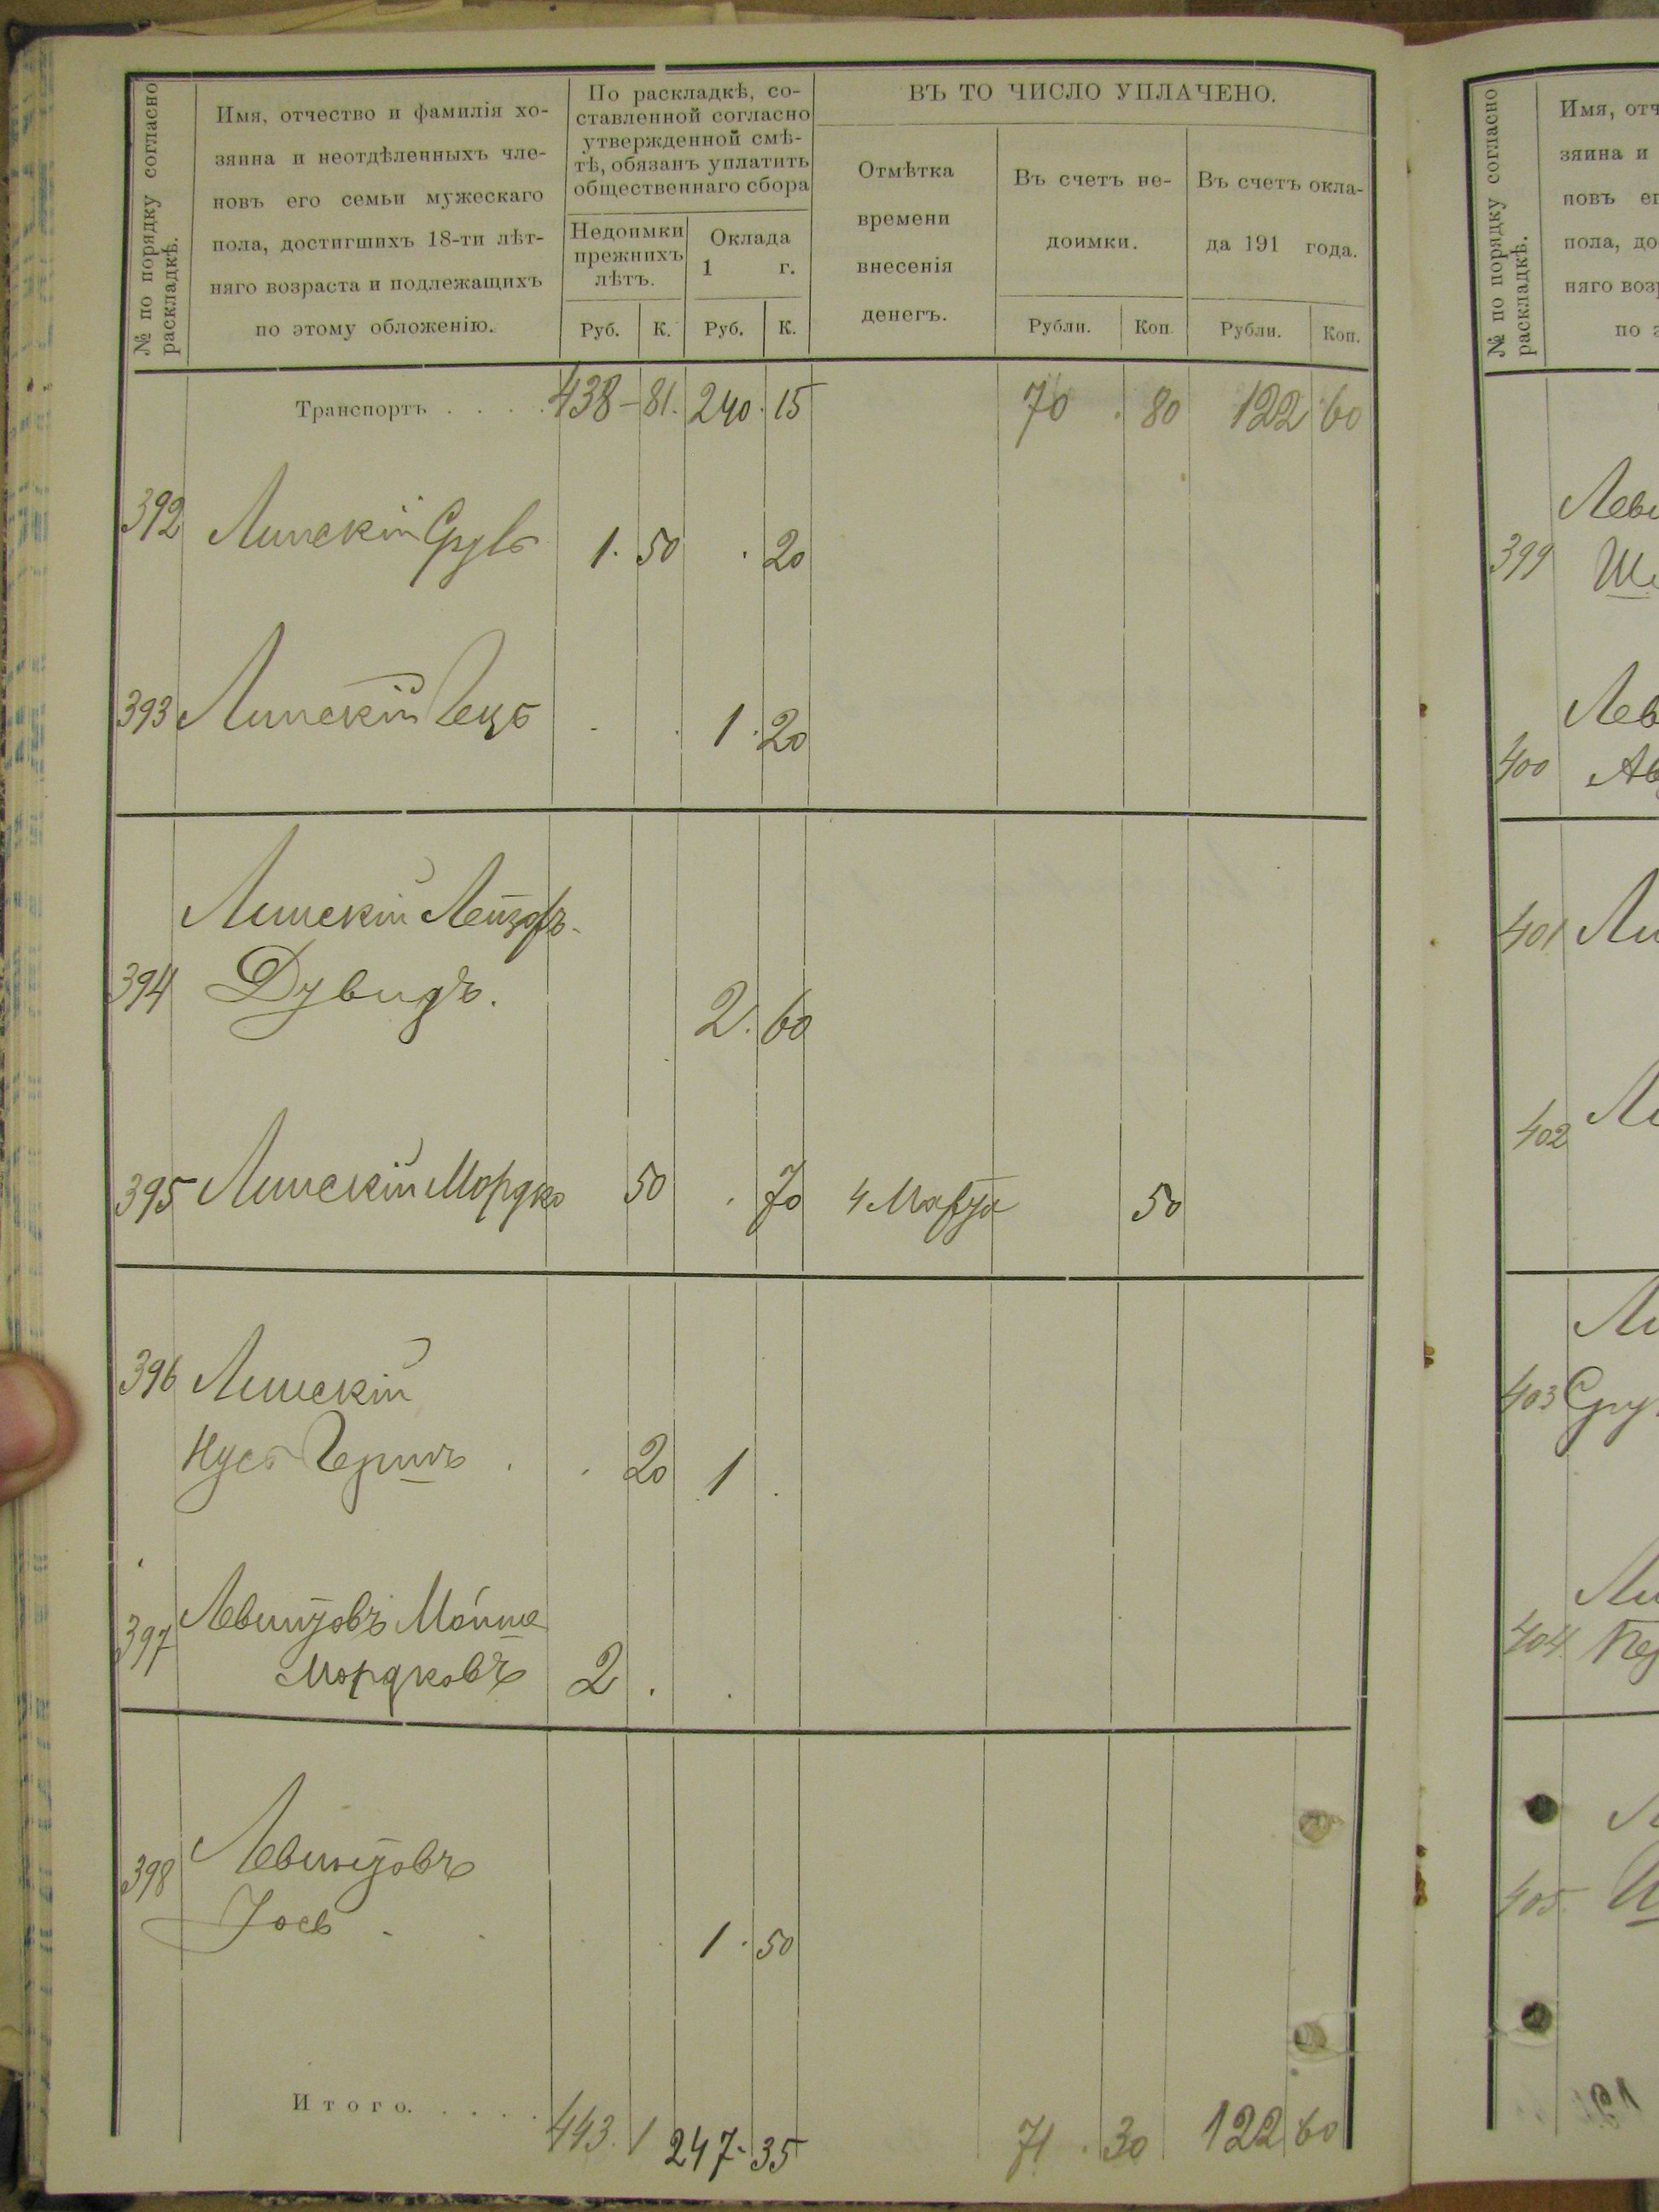 № по порядку согласно раскладкѣ.
Имя, отчество и фамилія хо-
зяина и неотдѣленныхъ чле-
новъ его семьи мужескаго
пола, достигшихъ 18-ти лѣт-
няго возраста и подлежащихъ
по этому обложенію.
По раскладкѣ, со-
ставленной согласно
утвержденной смѣ-
тѣ, обязанъ уплатить
общественнаго сбора
Недоимки
прежнихъ
лѣтъ.
Оклада
1 г.
Руб. К. Руб. К.
ВЪ ТО ЧИСЛО УПЛАЧЕНО.
Отмѣтка
времени
внесенія
денегъ.
Въ счетъ не-
доимки.
Рубли. Коп.
Въ счетъ окла-
да 191 года.
Рубли. Коп.
Транспортъ . . . . 438 - 81. 240. 15 70 . 80 122 60
392 Липскій Сруль 1. 50 . 20
393 Липскій Гецъ 1. 20
Липскій Лейзоръ
394 Дувидъ. 2. 60
395 Липскій Мордко 50 . 70 4 Марта 50
396 Липскій
Нусъ Гершъ . . 20 1 .
Левинтовъ Мойше
397 Мордковъ 2 . .
Левинтовъ
398 Іось . 1. 50
Итого. . . . . 443. 1 247. 35 71 . 30 122 60
№ по порядку согласно раскладкѣ.
Имя, отч
зяина и
новъ ег
пола, до
няго возр
по э
Леви
399
Лев
400
401 Ли
402
403
404
405